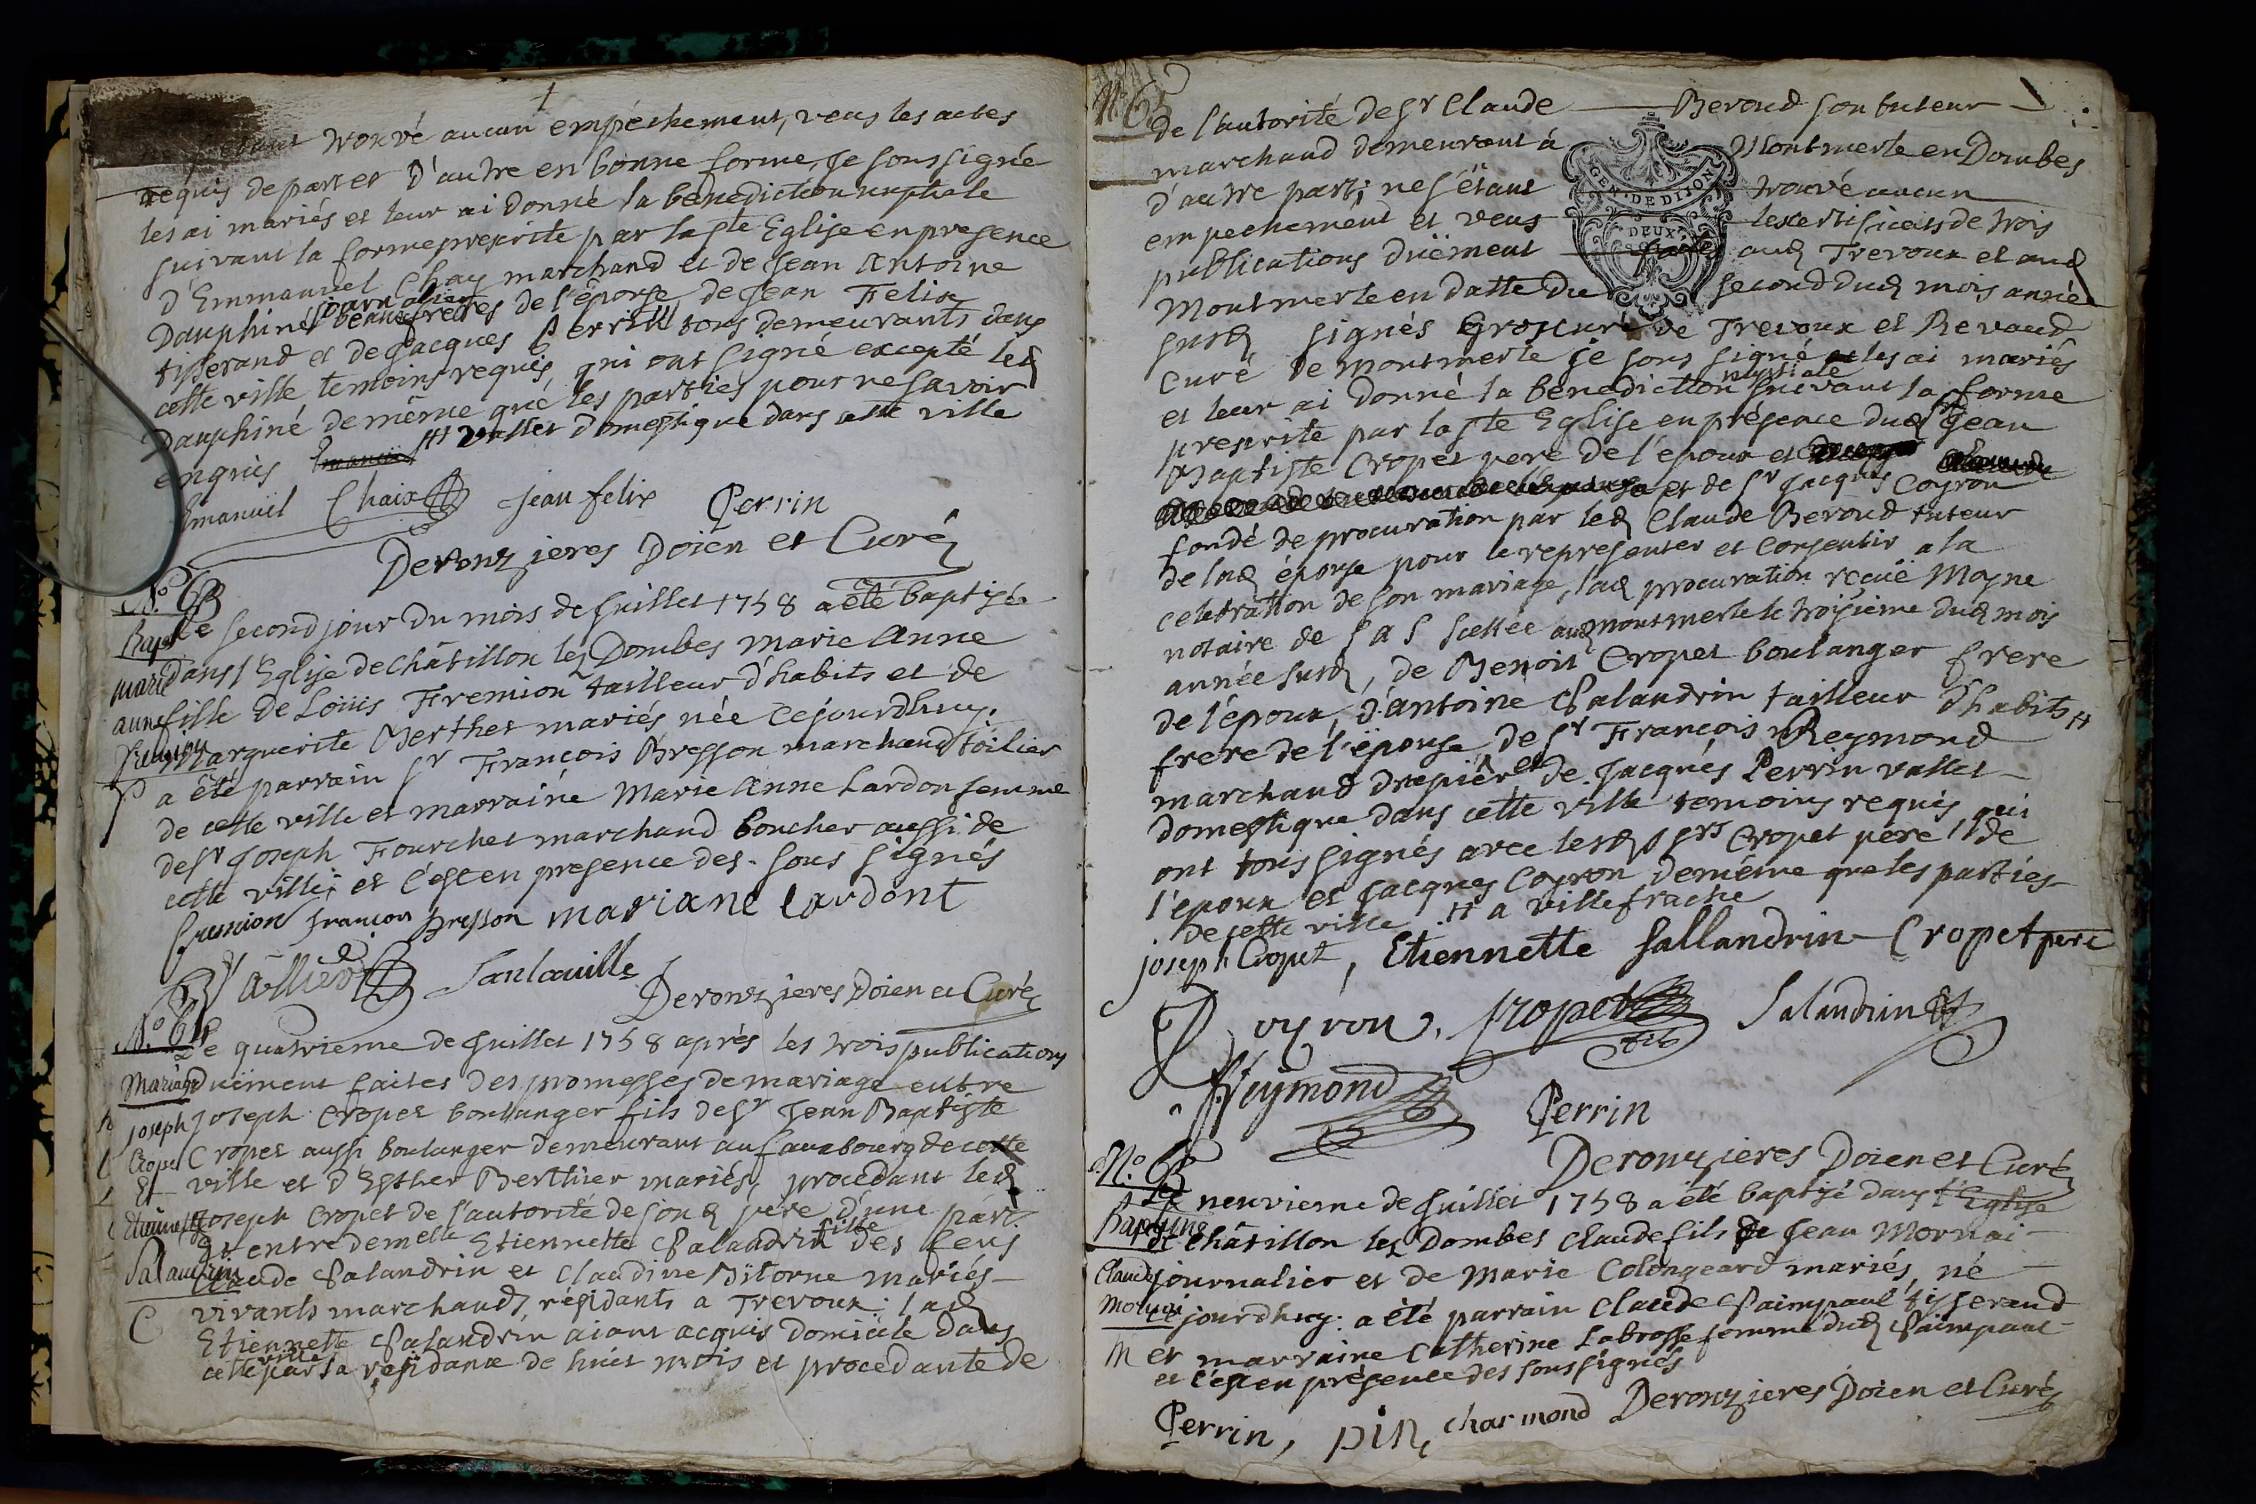 étant trouvé aucun empéchement, veus les actes
requis de part et d'autre en bonne forme, Je soussigné
les ai mariés et leur ai donné la benediction nuptiale
suivant la forme prescrite par la Ste Eglise en presence
d'Emmanuel Chaix marchand et de Jean Antoine
Dauphiné beaufreres de l'épouse de Jean Felix
tisserand et de Jacques Perrin tous demeurants dans
cette ville temoins requis qui ont signé excepté led
Dauphiné de même que les parties pour ne savoir
enquis # vallet domestique dans cette ville
Emanuël Chaix Jean felix Perrin
Deronzieres Doien et Curé
N.º 63
Le second jour du mois de Juillet 1758 a été baptisée
Bap. dans l'Eglise de Châtillon lez Dombes Marie Anne
marie fille de Loüis Fremion tailleur d'habits et de
anne Marguerite Berthet mariés née ce jourdhuy.
fremion a été parrain Sr François Bresson marchand toilier
de cette ville et marraine Marie Anne Lardon femme
de Sr Joseph Fourchet marchand boucher aussi de
cette ville; et c'est en presence des sous signés
fremion françois Bresson mariane lardont
Sanlaville
Deronzieres Doien et Curé
N.º 64
Le quatrieme de Juillet 1758 aprés les trois publications
Mariage duëment faites des promesses de mariage entre
joseph Joseph Cropet boulanger fils de Sr Jean Baptiste
Cropet Cropet aussi boulanger demeurant au fauxbourg de cette
Et ville et d'Esther Berthier mariés, procedant led
Etiennette Joseph Cropet de l'autorité de sond pere d'une part
Et entre demelle Etiennette Salandrin fille des feus
Salandrin Claude Salandrin et Claudine Bitorne mariés
C vivants marchands résidants a Trevoux; lad
Etiennette Salandrin aiant acquis domicile dans
cette ville par sa residance de huit mois et procedante de
de l'autorité de Sr Claude Beroud son tuteur
marchand demeurant à Montmerle en Dombes
d'autre part; ne s'étant trouvé aucun
empechement et veus les certificats de trois
GEN. DE DIJON
DEUX
publications duëment faites aud Trevoux et aud
Montmerle en datte du second dud mois année
susd signés Groscuré de Trevoux et Revaud
Curé de Montmerle je sous signé les ai mariés
et leur ai donné la benediction nuptiale suivant la forme
prescrite par la Ste Eglise en présence dud Sr Jean
Baptiste Cropet pere de l'epoux et
et de Sr Jacques Coyron
fondé de procuration par led Claude Beroud tuteur
de lad épouse pour le representer et consentir a la
celebration de son mariage, lad procuration recuë Moyne
notaire de S A S scellée aud Montmerle le troisieme dud mois
année susd, de Benoit Cropet boulanger frere
de l'époux, d'Antoine Salandrin tailleur d'habits #
frere de l'épouse, de Sr François Reymond
marchand drapier et de Jacques Perrin vallet
domestique dans cette ville temoins requis qui
ont tous signés avec lesd Srs Cropet pere de
l'epoux et Jacques Coyron, de même que les parties
de cette ville # a villefrache
joseph Cropet, Etiennette Sallandrin Cropet pere
Coyron, Cropet fils Salandrin
Reymond Perrin
Deronzieres Doien et Curé
N.º 65
Le neuvieme de Juillet 1758 a été baptisé dans l'Eglise
Baptême de Châtillon lez Dombes Claude fils de Jean Mornai
Claude journalier et de Marie Colongeard mariés, né
Mornai ce jourdhuy. a été parrain Claude Saimpaul tisserand
M et marraine Catherine Labrosse femme dud Saimpaul
et c'est en présence des sous signés
Perrin, Pin, charmond Deronzieres Doien et Curé